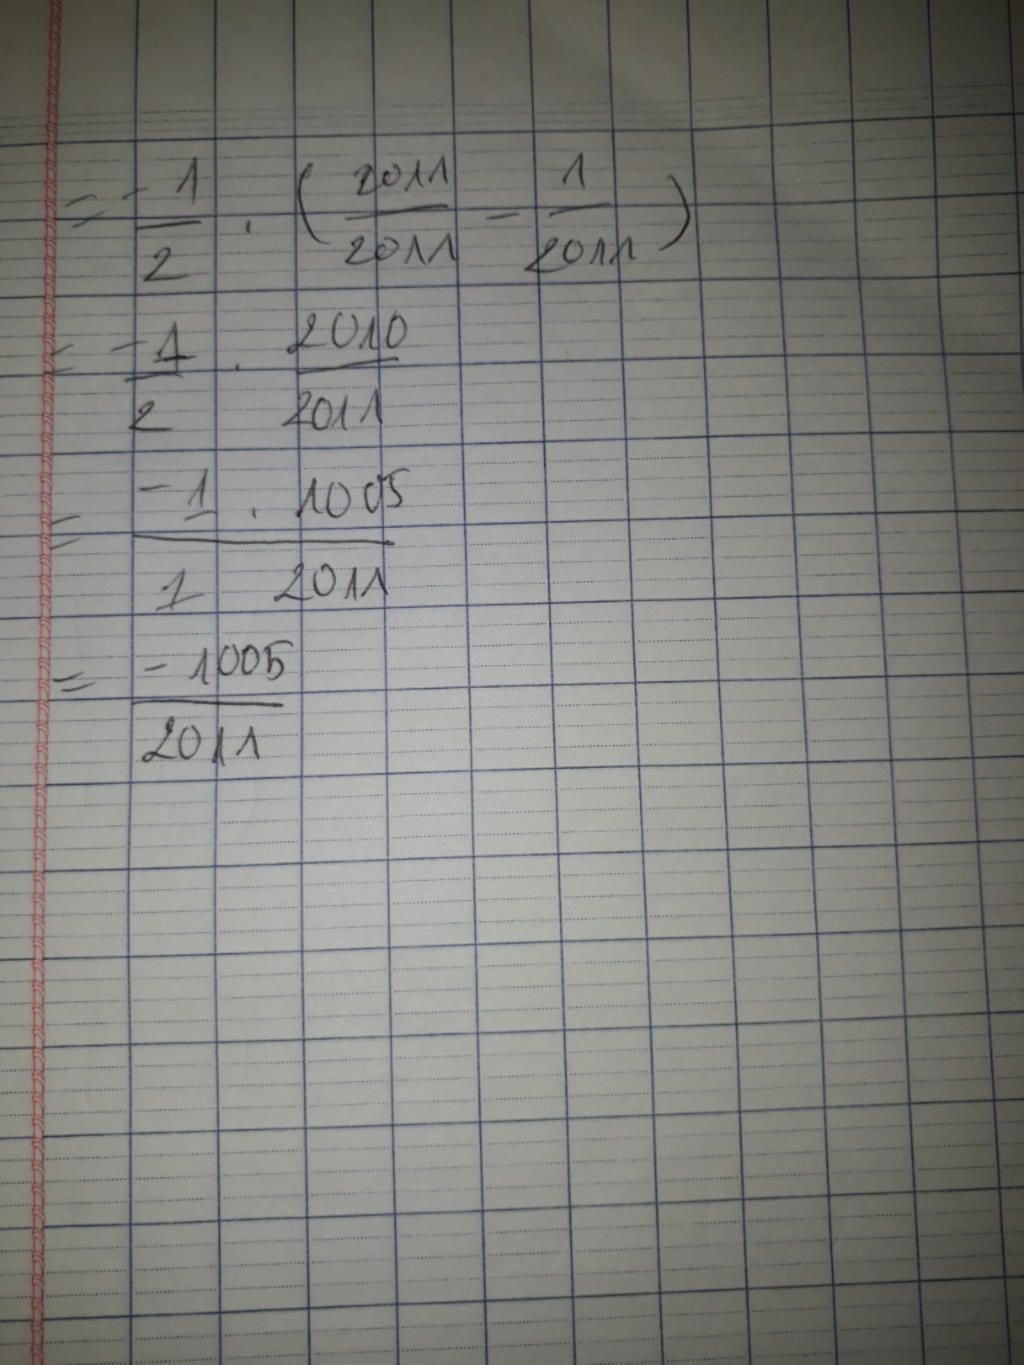 = -1/2 . (2011/2011 - 1/2011)
= -1/2 . 2010/2011
= -1 . 1005 / 1 2011
= -1005/2011